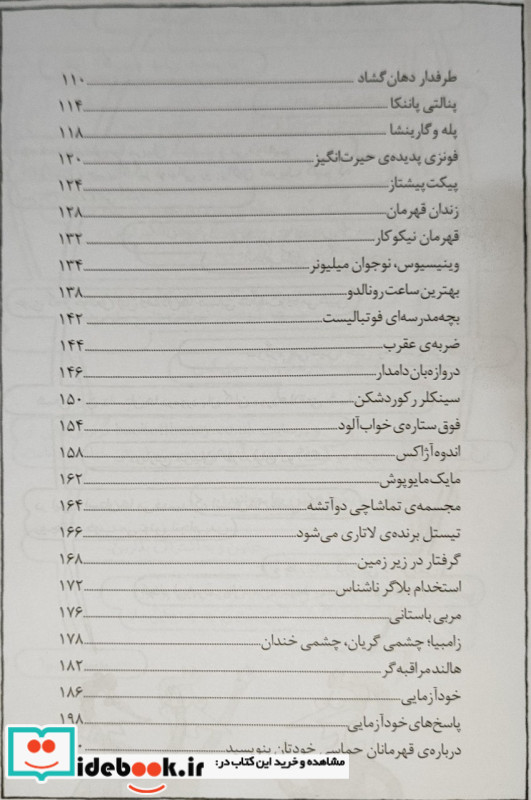 طرفدار دهان‌گشاد ۱۱۰
پنالتی پاننکا ۱۱۴
پله و گارینشا ۱۱۸
فونزی پدیده‌ی حیرت‌انگیز ۱۲۰
پیکت پیشتاز ۱۲۴
زندان قهرمان ۱۲۸
قهرمان نیکوکار ۱۳۲
وینیسیوس، نوجوان میلیونر ۱۳۴
بهترین ساعت رونالدو ۱۳۸
بچه‌مدرسه‌ای فوتبالیست ۱۴۲
ضربه‌ی عقرب ۱۴۴
دروازه‌بان دامدار ۱۴۶
سینکلر رکوردشکن ۱۵۰
فوق ستاره‌ی خواب‌آلود ۱۵۴
اندوه آژاکس ۱۵۸
مایک مایوپوش ۱۶۲
مجسمه‌ی تماشاچی دوآتشه ۱۶۴
تیستل برنده‌ی لاتاری می‌شود ۱۶۶
گرفتار در زیر زمین ۱۶۸
استخدام بلاگر ناشناس ۱۷۲
مربی باستانی ۱۷۶
زامبیا؛ چشمی گریان، چشمی خندان ۱۷۸
هالند مراقبه‌گر ۱۸۲
خودآزمایی ۱۸۶
پاسخ‌های خودآزمایی ۱۹۸
درباره‌ی قهرمانان حماسی خودتان بنویسید
مشاهده و خرید این کتاب در:
idebook.ir